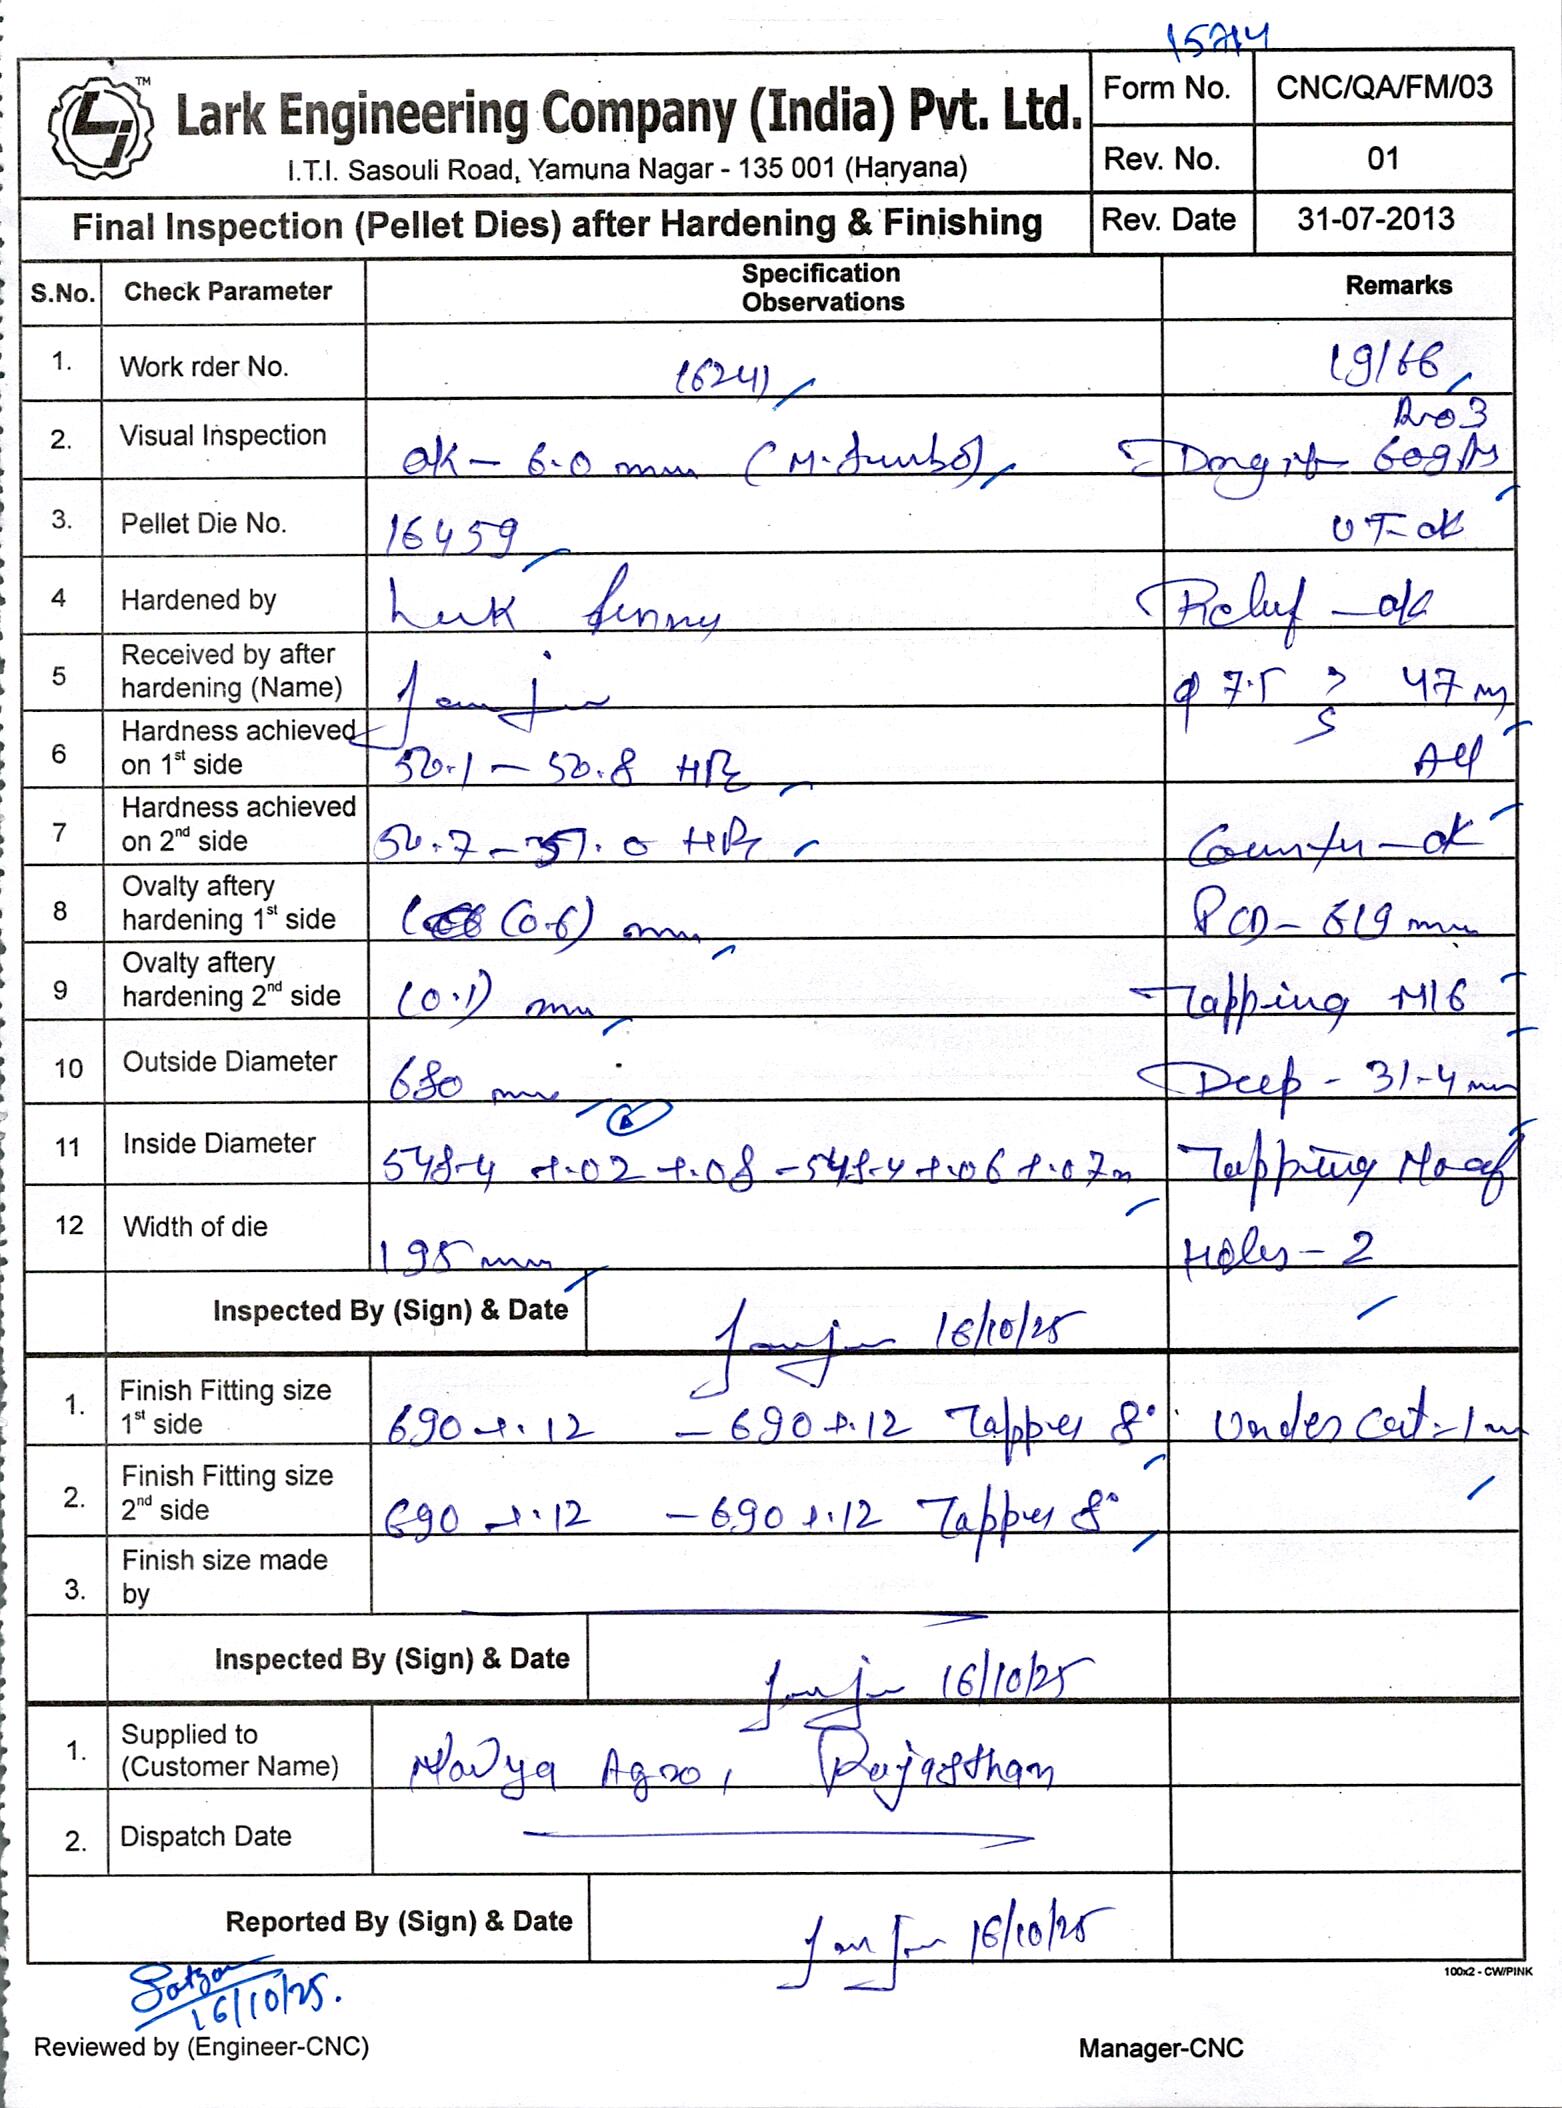 15714
TM
Lark Engineering Company (India) Pvt. Ltd.
I.T.I. Sasouli Road, Yamuna Nagar - 135 001 (Haryana)
Form No. CNC/QA/FM/03
Rev. No. 01
Final Inspection (Pellet Dies) after Hardening & Finishing
Rev. Date 31-07-2013
S.No. Check Parameter Specification Observations Remarks
1. Work rder No. 16241 19/66
2. Visual Inspection OK - 6.0 mm (M. Jumbo)
3. Pellet Die No. 16459 UT-OK
4 Hardened by Relief - ok
5 Received by after hardening (Name) φ 7.5 47 m
6 Hardness achieved on 1st side 50.1 - 50.8 HRc All
7 Hardness achieved on 2nd side 50.7 - 51.0 HRc Counter - OK
8 Ovalty aftery hardening 1st side (0.6) mm PCD - 619 mm
9 Ovalty aftery hardening 2nd side (0.1) mm Tapping M16
10 Outside Diameter 680 mm Deep - 31.4 mm
11 Inside Diameter 548.4 +.02 +.08 - 548.4 +.06 +.07 m Tapping No of
12 Width of die 195 mm Holes - 2
Inspected By (Sign) & Date 16/10/25
1. Finish Fitting size 1st side 690 +.12 - 690 +.12 Tapper 8° Under Cut = 1 m
2. Finish Fitting size 2nd side 690 +.12 - 690 +.12 Tapper 8°
3. Finish size made by
Inspected By (Sign) & Date 16/10/25
1. Supplied to (Customer Name) Agro, Rajasthan
2. Dispatch Date
Reported By (Sign) & Date 16/10/25
100x2 - CW/PINK
16/10/25.
Reviewed by (Engineer-CNC) Manager-CNC